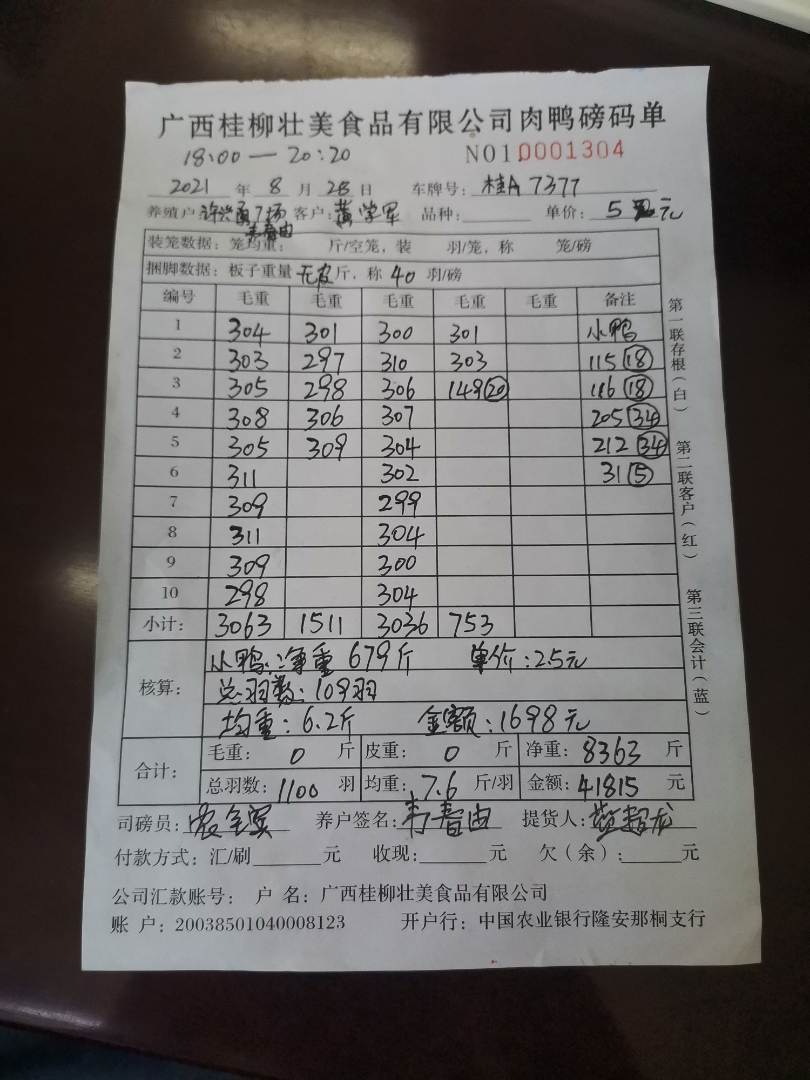 广西桂柳壮美食品有限公司肉鸭磅码单
18:00—20:20 NO10001304
2021 年 8 月 28 日 车牌号: 桂A 7377
养殖户 许兴勇7场 客户: 黄学军 品种: 单价: 5 元
装笼数据: 笼均重: 斤/空笼, 装 羽/笼, 称 笼/磅
捆脚数据: 板子重量 无皮 斤, 称 40 羽/磅
编号 毛重 毛重 毛重 毛重 毛重 备注
1 304 301 300 301 小鸭
2 303 297 310 303 115 (18)
3 305 298 306 149 (20) 116 (18)
4 308 306 307 205 (34)
5 305 309 304 212 (34)
6 311 302 31 (5)
7 309 299
8 311 304
9 309 300
10 298 304
小计: 3063 1511 3036 753
核算: 小鸭:净重 679斤 单价:2.5元
总羽数: 109羽
均重: 6.2斤 金额: 1698元
合计: 毛重: 0 斤 皮重: 0 斤 净重: 8363 斤
总羽数: 1100 羽 均重: 7.6 斤/羽 金额: 41815 元
司磅员: 养户签名: 提货人:
付款方式: 汇/刷 元 收现: 元 欠(余): 元
公司汇款账号: 户 名: 广西桂柳壮美食品有限公司
账 户: 20038501040008123 开户行: 中国农业银行隆安那桐支行
第一联存根(白)
第二联客户(红)
第三联会计(蓝)